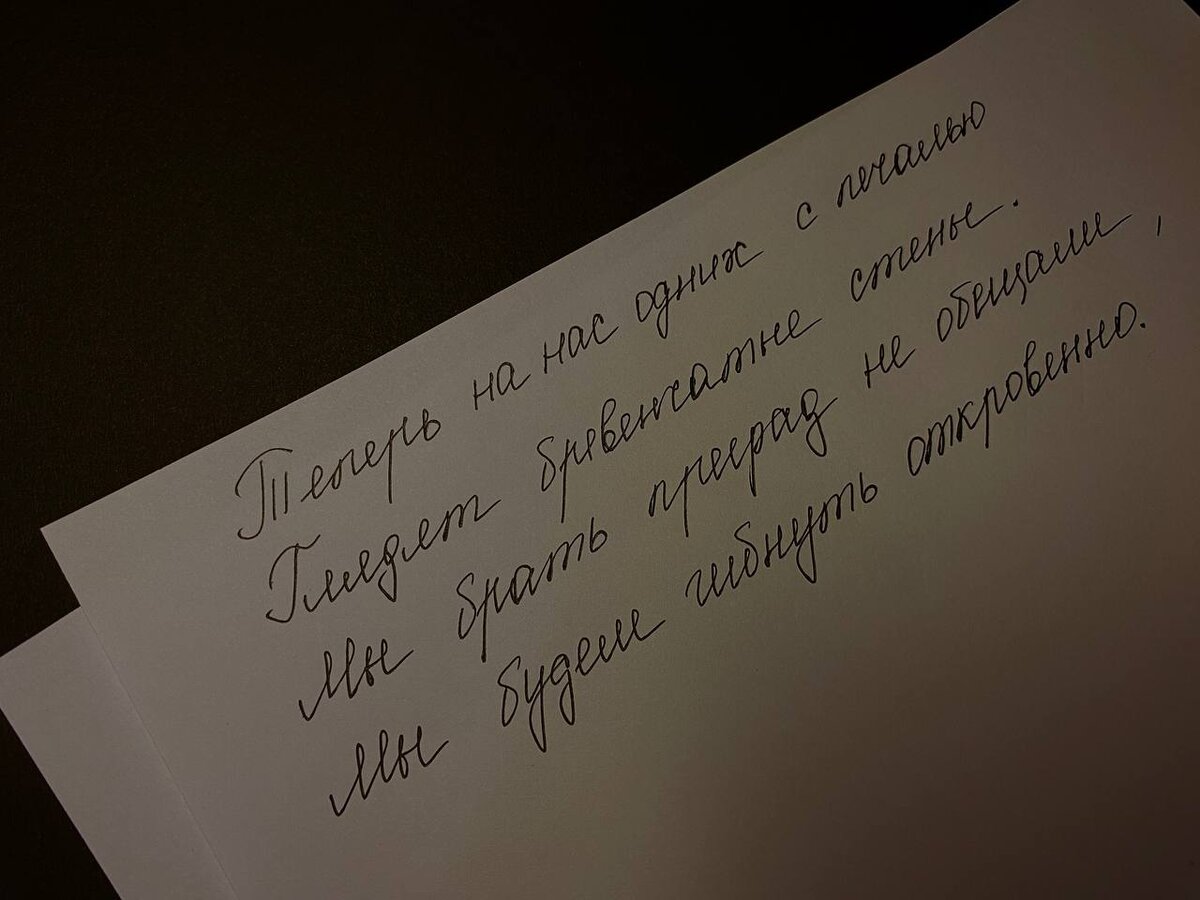 Теперь на нас одних с печалью
Глядят бревенчатые стены.
Мы брать преград не обещали,
Мы будем гибнуть откровенно.